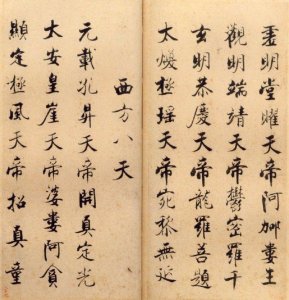 虛明堂曜天帝阿那婁生
觀明端靖天帝鬱密羅千
玄明恭慶天帝龍羅菩題
太煥極瑶天帝宛黎無延
西方八天
元載孔昇天帝開真定光
太安皇崖天帝婆婁阿貪
顯定極風天帝招真童